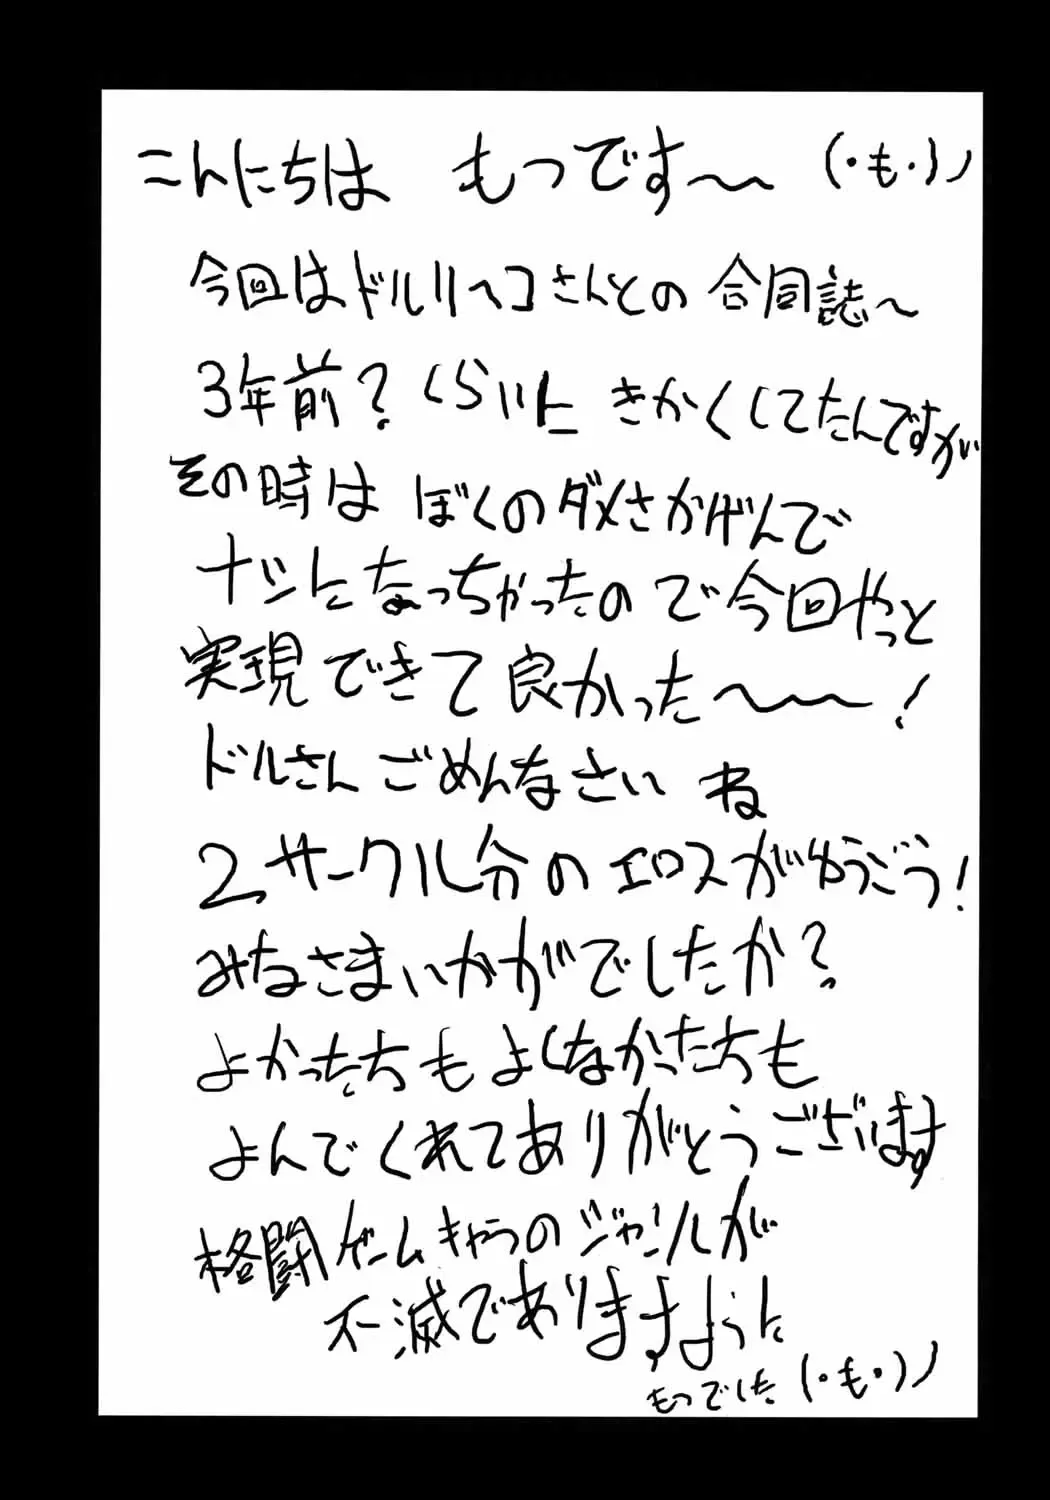 こんにちは もつです〜 (・も・)ノ
今回はドルリヘコさんとの合同誌〜
3年前?くらいに きかくしてたんですが
その時は ぼくのダメさかげんで
ナシになっちゃったので今回やっと
実現できて良かった〜〜!
ドルさん ごめんなさい ね
2サークル分のエロスがゆうごう!
みなさまいかがでしたか?
よかったちも よくなかったちも
よんでくれてありがとうございます
格闘ゲームキャラのジャンルが
不滅でありますように
もつでした (・も・)ノ